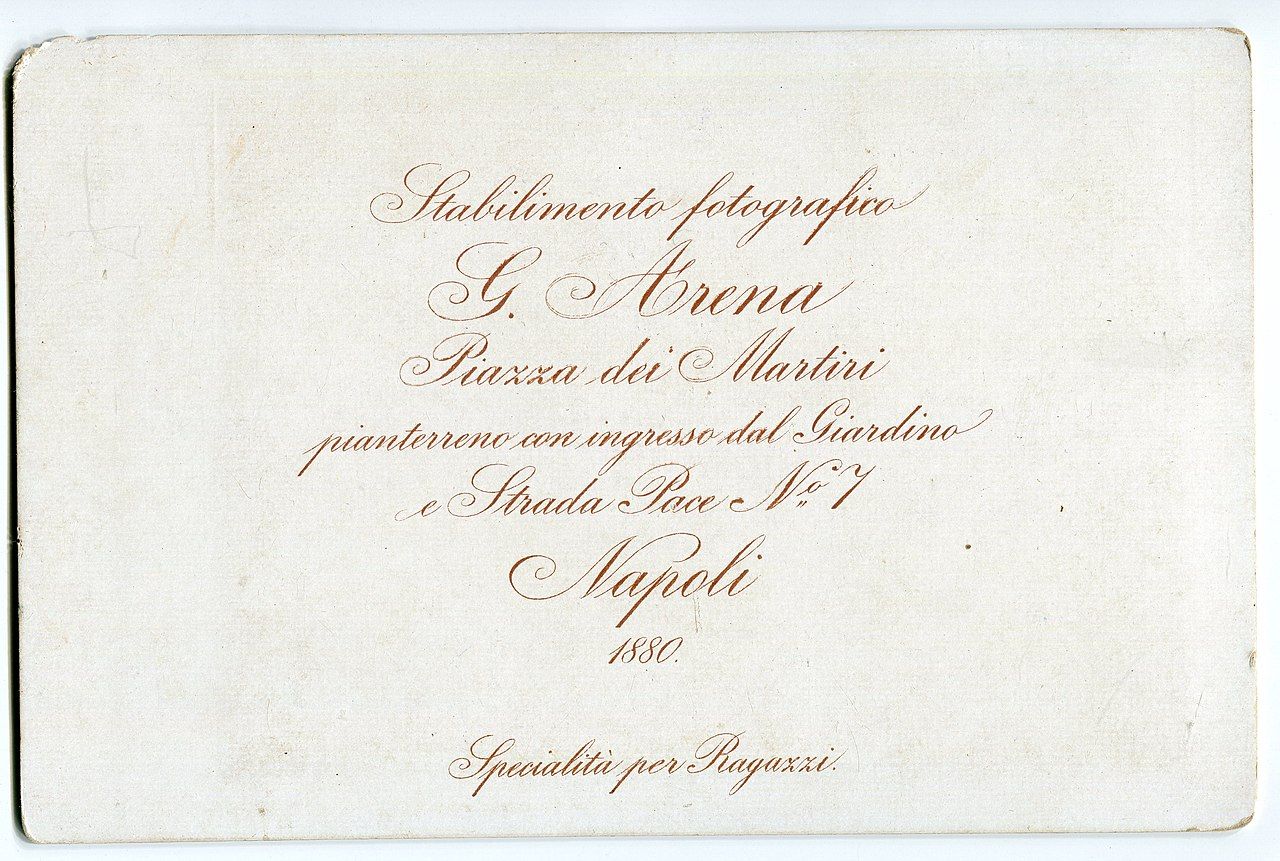 Stabilimento fotografico
G. Arena
Piazza dei Martiri
pianterreno con ingresso dal Giardino
e Strada Pace Nº 7
Napoli
1880.
Specialità per Ragazzi.